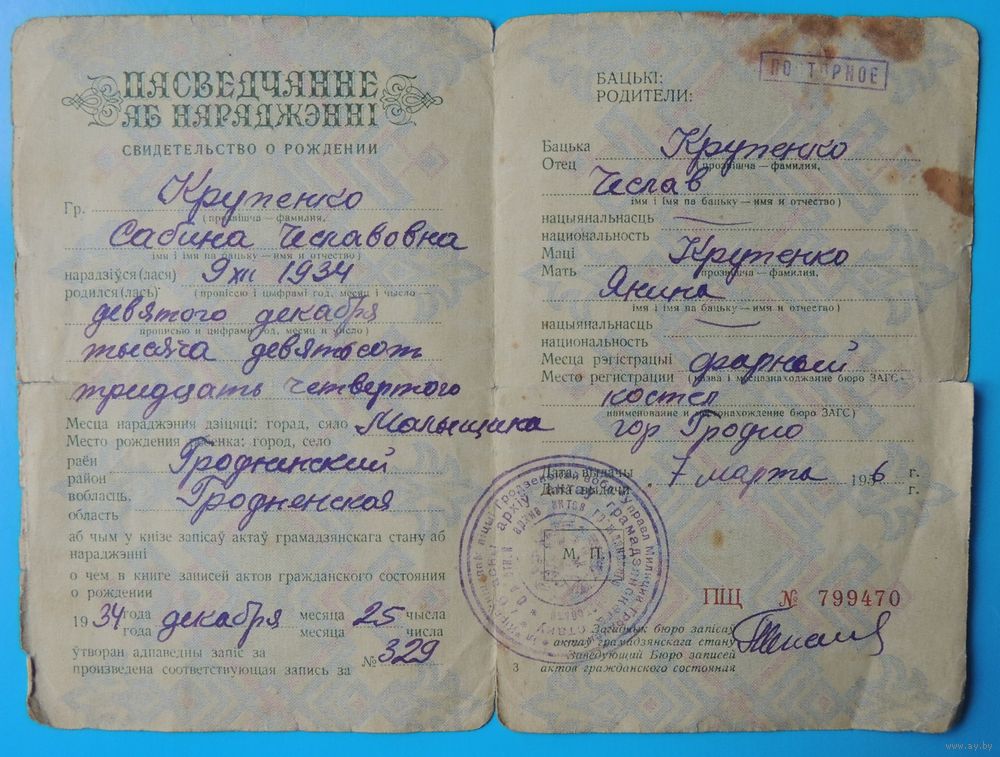 ПАСВЕДЧАННЕ
АБ НАРАДЖЭННІ
СВИДЕТЕЛЬСТВО О РОЖДЕНИИ
Гр. Крупенко
(прозвішча — фамилия,
Сабина Чеславовна
імя і імя па бацьку — имя и отчество)
нарадзіўся (лася) 9 XII 1934
родился (лась) (пропіссю і цыфрамі год, месяц і число
девятого декабря
прописью и цифрами год, месяц и число)
тысяча девятьсот
тридцать четвертого
Месца нараджэння дзіцяці: горад, сяло Малыщина
Место рождения ребенка: город, село
раён Гродненский
район
вобласць, Гродненская
область
аб чым у кнізе запісаў актаў грамадзянскага стану аб
нараджэнні
о чем в книге записей актов гражданского состояния
о рождении
19 34 года декабря месяца 25 чысла
года месяца числа
ўтворан адпаведны запіс за
произведена соответствующая запись за № 329
ПОВТОРНОЕ
БАЦЬКІ:
РОДИТЕЛИ:
Бацька Крупенко
Отец (прозвішча — фамилия,
Чеслав
імя і імя па бацьку — имя и отчество)
нацыянальнасць
национальность
Маці Крупенко
Мать (прозвішча — фамилия,
Янина
імя і імя па бацьку — имя и отчество)
нацыянальнасць
национальность
Месца рэгістрацыі фарный
Место регистрации (назва і месцазнаходжанне бюро ЗАГС -
костел
наименование и местонахождение бюро ЗАГС)
гор Гродно
Дата выдачы 7 марта 1956 г.
Дата выдачи г.
М. П.
ПЩ № 799470
Загадчык бюро запісаў
актаў грамадзянскага стану
Заведующий Бюро записей
актов гражданского состояния
3
www.ay.by